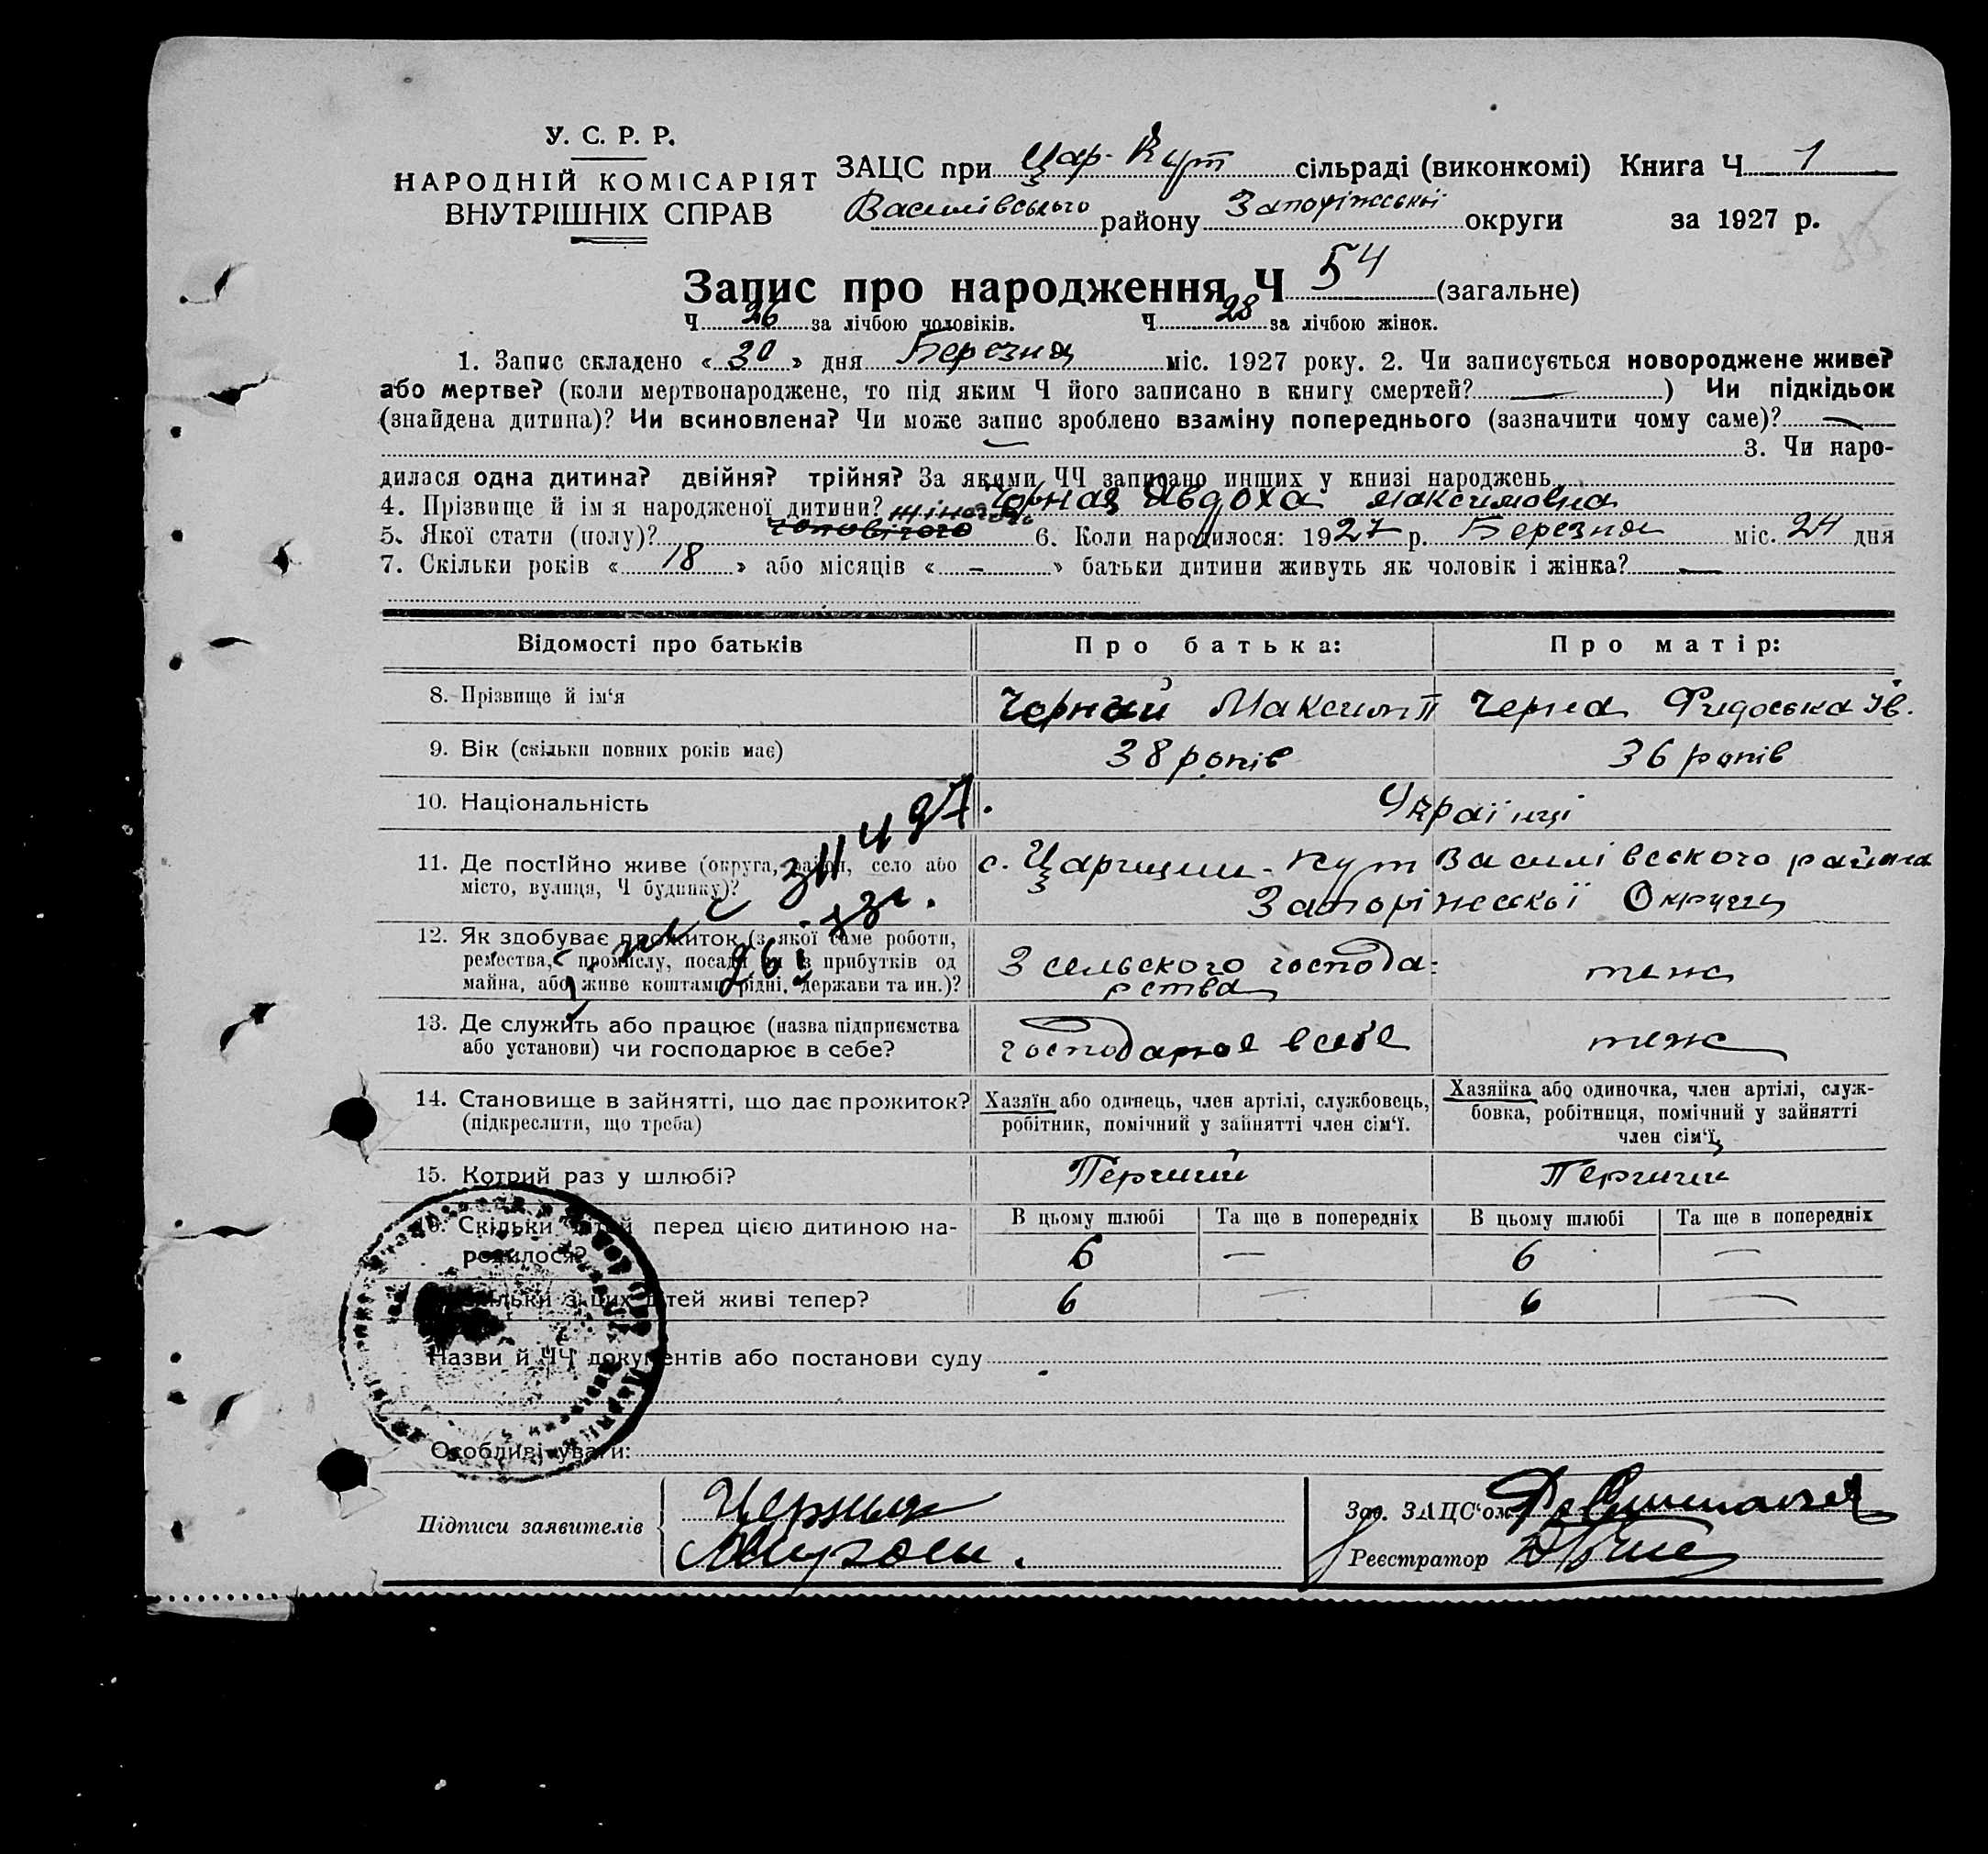 У. С. Р. Р.
НАРОДНІЙ КОМІСАРІЯТ
ВНУТРІШНІХ СПРАВ
ЗАЦС при Цар-Кут сільраді (виконкомі) Книга Ч 1
Василівського району Запоріжської округи за 1927 р.
Запис про народження Ч 54 (загальне)
Ч 26 за лічбою чоловіків. Ч 28 за лічбою жінок.
1. Запис складено « 30 » дня Березня міс. 1927 року. 2. Чи записується новороджене живе?
або мертве? (коли мертвонароджене, то під яким Ч його записано в книгу смертей? — ) Чи підкідьок
(знайдена дитина)? Чи всиновлена? Чи може запис зроблено взаміну попереднього (зазначити чому саме)? —
— 3. Чи наро-
дилася одна дитина? двійня? трійня? За якими ЧЧ записано инших у книзі народжень
4. Прізвище й ім'я народженої дитини? Чорная Явдоха Максимовна
5. Якої стати (полу)? чоловічого жіночого 6. Коли народилося: 1927 р. Березня міс. 24 дня
7. Скільки років « 18 » або місяців « - » батьки дитини живуть як чоловік і жінка? —
Відомості про батьків Про батька: Про матір:
8. Прізвище й ім'я Чорний Максим П Черна Фидоська Ів.
9. Вік (скільки повних років має) 38 років 36 років
10. Національність Українці
11. Де постійно живе (округа, район, село або с. Царицин-Кут Василівського района
місто, вулиця, Ч будинку)? Запоріжської Округи
12. Як здобуває прожиток (з якої саме роботи,
ремества, промислу, посади чи з прибутків од З сельського господа- теж
майна, або живе коштами рідні, держави та ин.)? рства
13. Де служить або працює (назва підприємства
або установи) чи господарює в себе? господарює в себе теж
14. Становище в зайнятті, що дає прожиток? Хазяїн або одинець, член артілі, службовець, Хазяйка або одиночка, член артілі, служ-
(підкреслити, що треба) робітник, помічний у зайнятті член сім'ї. бовка, робітниця, помічний у зайнятті
член сім'ї
15. Котрий раз у шлюбі? Перший Перший
16. Скільки дітей перед цією дитиною на- В цьому шлюбі Та ще в попередніх В цьому шлюбі Та ще в попередніх
родилося? 6 — 6 —
Скільки з цих дітей живі тепер? 6 — 6 —
Назви й ЧЧ документів або постанови суду
Особливі уваги:
Підписи заявителів Черныя
Зав. ЗАЦС'ом
Реєстратор